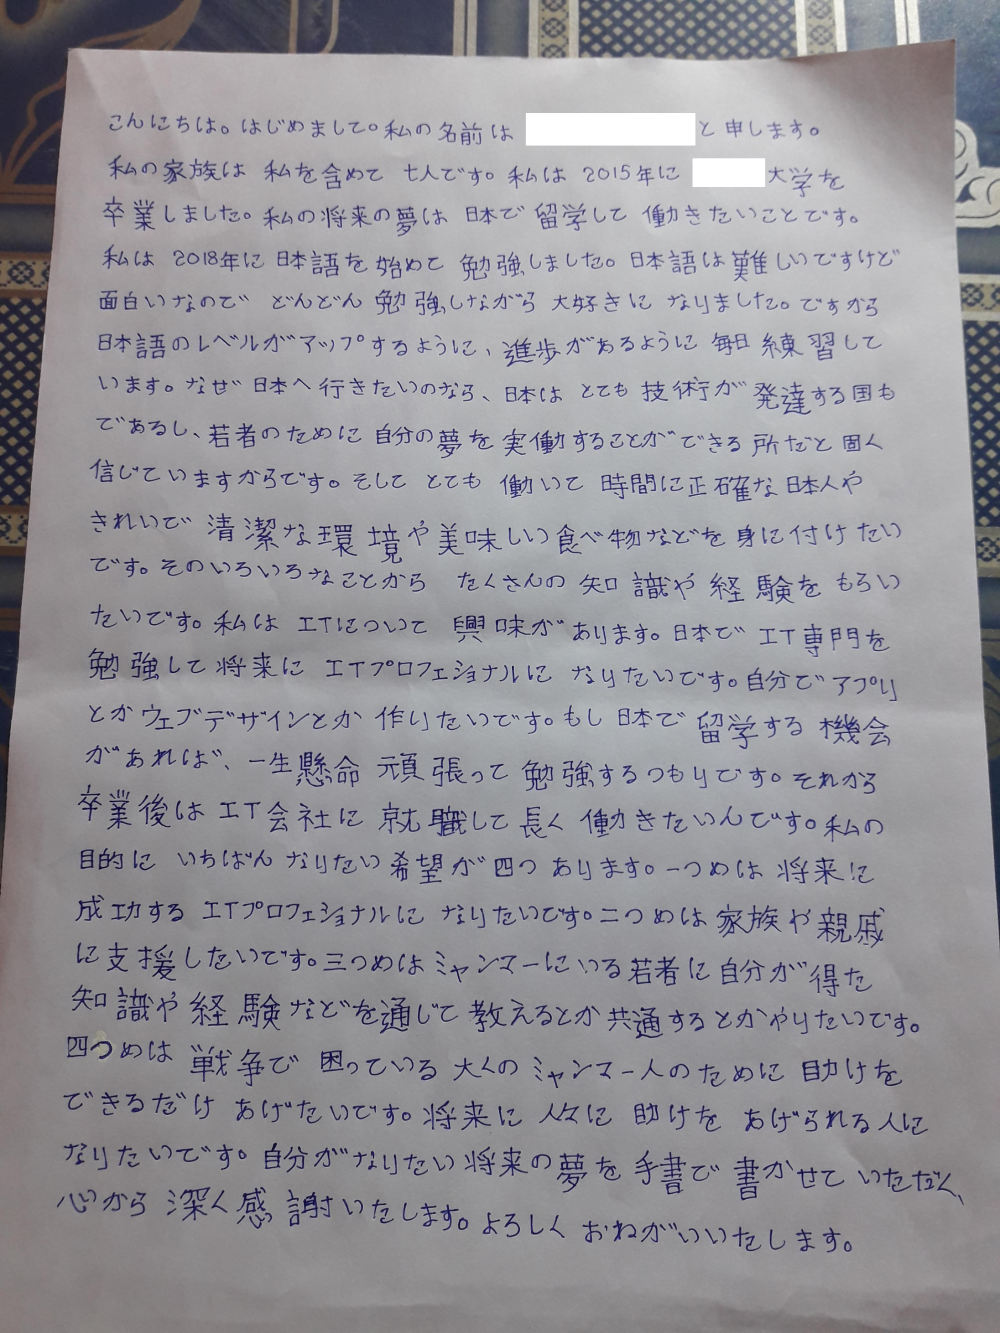 こんにちは。はじめまして。私の名前は と申します。
私の家族は 私を含めて 七人です。私は 2015年に 大学を
卒業しました。私の将来の夢は 日本で 留学して 働きたいことです。
私は 2018年に 日本語を 始めて 勉強しました。日本語は 難しいですけど
面白いなので どんどん 勉強しながら 大好きに なりました。ですから
日本語のレベルがアップするように、進歩があるように 毎日 練習して
います。なぜ 日本へ 行きたいのなら、日本は とても 技術が 発達する国も
であるし、若者のために 自分の夢を 実働することができる 所だと 固く
信じていますからです。そして とても 働いて 時間に正確な 日本人や
きれいで 清潔な 環境や 美味しい 食べ物などを 身に付けたい
です。そのいろいろなことから たくさんの 知識や 経験を もらい
たいです。私は ITについて 興味があります。日本で IT専門を
勉強して 将来に ITプロフェショナルに なりたいです。自分で アプリ
とか ウェブデザインとか 作りたいです。もし 日本で 留学する 機会
があれば、一生懸命 頑張って 勉強するつもりです。それから
卒業後は IT会社に 就職して 長く 働きたいんです。私の
目的に いちばん なりたい 希望が 四つ あります。一つめは 将来に
成功する ITプロフェショナルに なりたいです。二つめは 家族や 親戚
に 支援したいです。三つめは ミャンマーにいる 若者に 自分が 得た
知識や 経験などを 通じて 教えるとか 共通するとかやりたいです。
四つめは 戦争で 困っている 大くの ミャンマー人のために 助けを
できるだけ あげたいです。将来に 人々に 助けを あげられる 人に
なりたいです。自分がなりたい 将来の夢を 手書で 書かせて いただく、
心から 深く 感謝いたします。よろしく おねがいいたします。